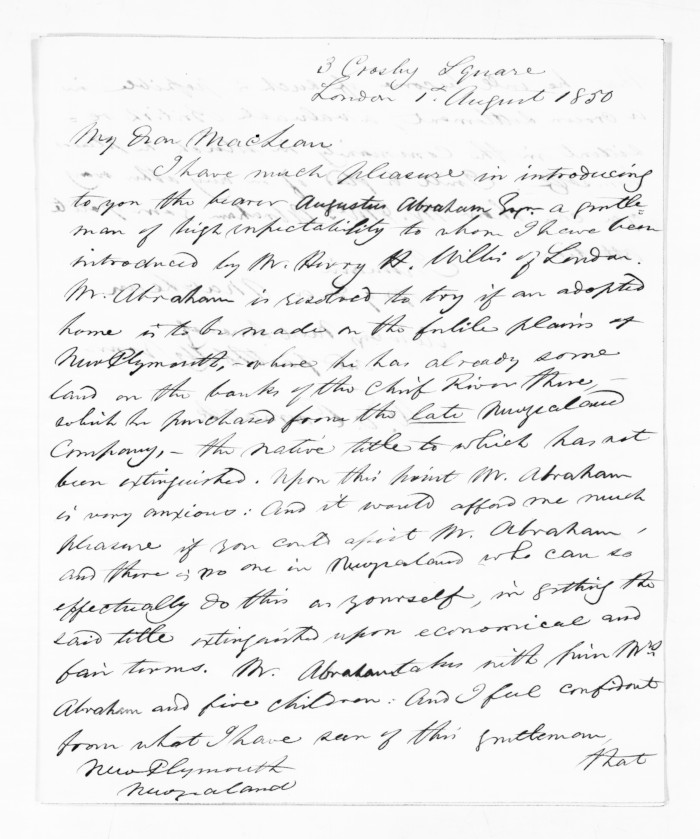 3 Crosby Square
London 1st August 1850
My Dear MacLean
I have much pleasure in introducing
to you the bearer Augustus Abraham Esqr. a gentle-
man of high respectability to whom I have been
introduced by Mr. Henry H. Willis of London.
Mr. Abraham is resolved to try if an adopted
home is to be made on the fertile plains of
New Plymouth, - where he has already some
land on the banks of the Chief River there, -
which he purchased from the late Newzealand
Company, - the native title to which has not
been extinguished. Upon this point Mr. Abraham
is very anxious: And it would afford me much
pleasure if you could assist Mr. Abraham,
and there is no one in Newzealand who can so
effectually do this as yourself, in getting the
said title extinguished upon economical and
fair terms. Mr. Abraham takes with him Mrs
Abraham and five children: And I feel confident
from what I have seen of this gentleman,
that
New Plymouth
Newzealand